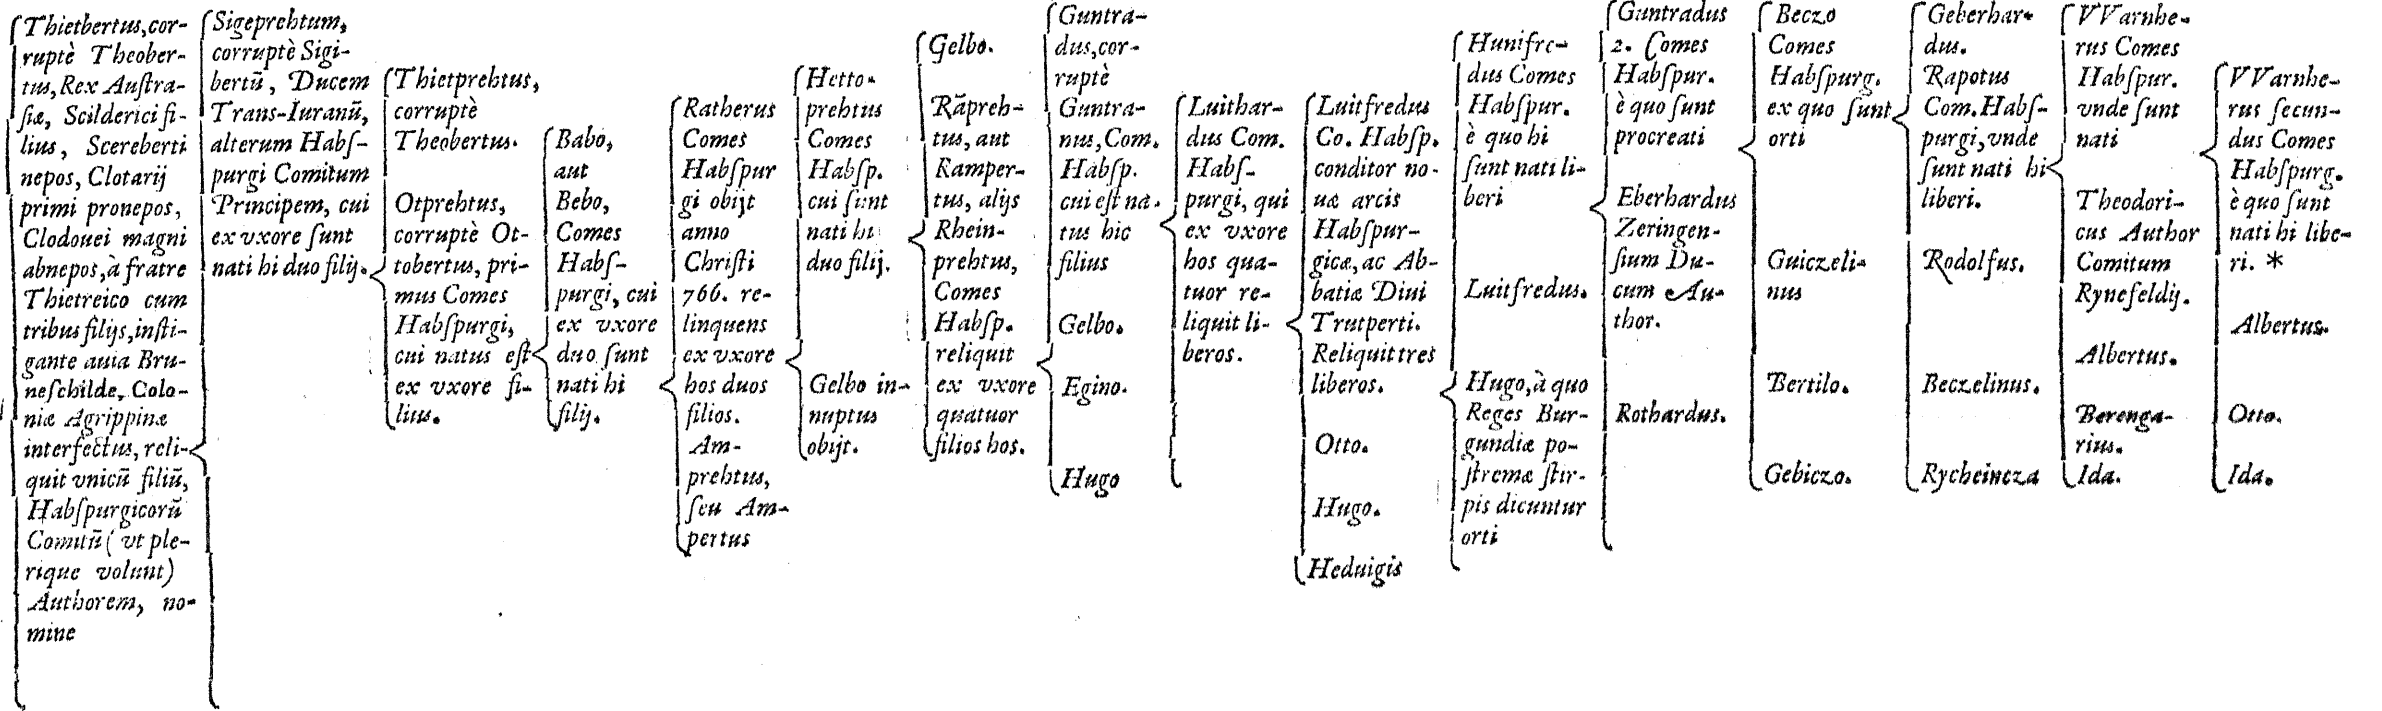 Thietbertus, cor-
ruptè Theober-
tus, Rex Auſtra-
ſiæ, Scilderici fi-
lius, Scereberti
nepos, Clotarij
primi pronepos,
Clodouei magni
abnepos, à fratre
Thietreico cum
tribus filijs, inſti-
gante auia Bru-
neſchilde, Colo-
niæ Agrippinæ
interfectus, reli-
quit vnicũ filiũ,
Habſpurgicorũ
Comitũ ( vt ple-
rique volunt)
Authorem, no-
mine
Sigeprehtum,
corruptè Sigi-
bertũ, Ducem
Trans-Iuranũ,
alterum Habſ-
purgi Comitum
Principem, cui
ex vxore ſunt
nati hi duo filij.
Thietprehtus,
corruptè
Theobertus.
Otprehtus,
corruptè Ot-
tobertus, pri-
mus Comes
Habſpurgi,
cui natus eſt
ex vxore fi-
lius.
Babo,
aut
Bebo,
Comes
Habſ-
purgi, cui
ex vxore
duo ſunt
nati hi
filij.
Ratherus
Comes
Habſpur
gi obijt
anno
Chriſti
766. re-
linquens
ex vxore
hos duos
filios.
Am-
prehtus,
ſeu Am-
pertus
Hetto-
prehtus
Comes
Habſp.
cui ſunt
nati hi
duo filij.
Gelbo in-
nuptus
obijt.
Gelbo.
Rãpreh-
tus, aut
Ramper-
tus, alijs
Rhein-
prehtus,
Comes
Habſp.
reliquit
ex vxore
quatuor
filios hos.
Guntra-
dus, cor-
ruptè
Guntra-
nus, Com.
Habſp.
cui eſt na-
tus hic
filius
Gelbo.
Egino.
Hugo
Luithar-
dus Com.
Habſ-
purgi, qui
ex vxore
hos qua-
tuor re-
liquit li-
beros.
Luitfredus
Co. Habſp.
conditor no-
uæ arcis
Habſpur-
gicæ, ac Ab-
batiæ Diui
Trutperti.
Reliquit tres
liberos.
Otto.
Hugo.
Heduigis
Hunifre-
dus Comes
Habſpur.
è quo hi
ſunt nati li-
beri
Luitfredus.
Hugo, à quo
Reges Bur-
gundiæ po-
ſtremæ ſtir-
pis dicuntur
orti
Guntradus
2. Comes
Habſpur.
è quo ſunt
procreati
Eberhardus
Zeringen-
ſium Du-
cum Au-
thor.
Rothardus.
Beczo
Comes
Habſpurg.
ex quo ſunt
orti
Guiczeli-
nus
Bertilo.
Gebiczo.
Geberhar-
dus.
Rapotus
Com. Habſ-
purgi, vnde
ſunt nati hi
liberi.
Rodolfus.
Beczelinus.
Rycheincza
VVarnhe-
rus Comes
Habſpur.
vnde ſunt
nati
Theodori-
cus Author
Comitum
Rynefeldij.
Albertus.
Berenga-
rius.
Ida.
VVarnhe-
rus ſecun-
dus Comes
Habſpurg.
è quo ſunt
nati hi libe-
ri. *
Albertus.
Otto.
Ida.